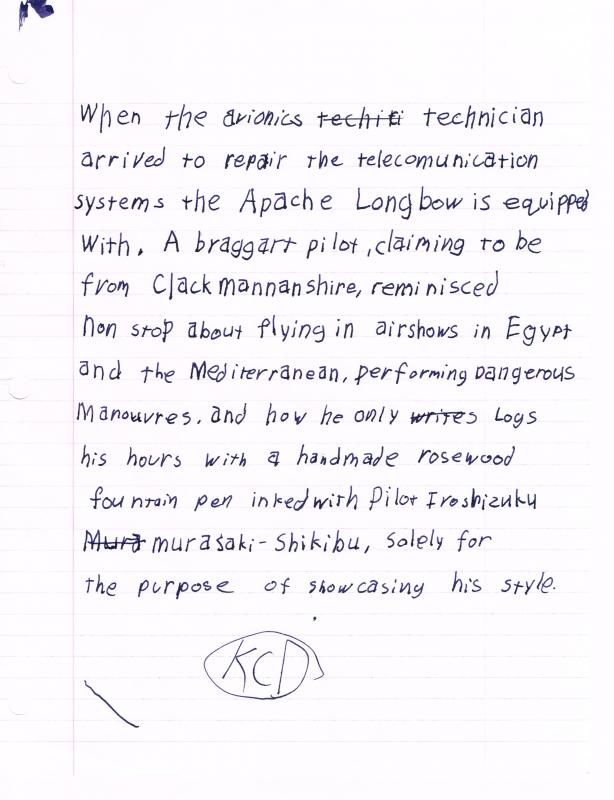 When the avionics techiti technician
arrived to repair the telecomunication
systems the Apache Longbow is equipped
With. A braggart pilot, claiming to be
from Clackmannanshire, reminisced
Non stop about flying in airshows in Egypt
and the Mediterranean, performing Dangerous
Manouvres, and how he only writes Logs
his hours with a handmade rosewood
fountain pen inked with Pilot Iroshizuku
Mura murasaki-Shikibu, solely for
the purpose of showcasing his style.
KCD